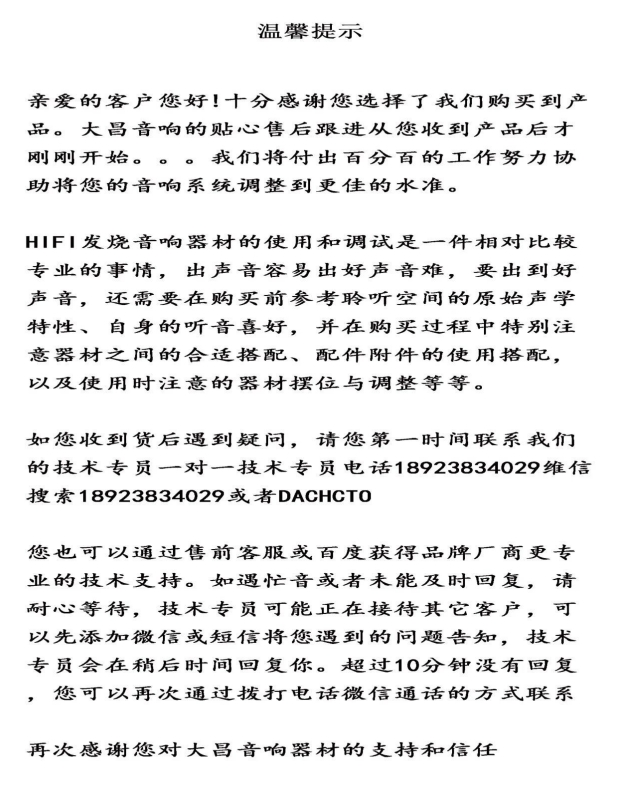 温馨提示
亲爱的客户您好!十分感谢您选择了我们购买到产
品。大昌音响的贴心售后跟进从您收到产品后才
刚刚开始。。。我们将付出百分百的工作努力协
助将您的音响系统调整到更佳的水准。
HIFI发烧音响器材的使用和调试是一件相对比较
专业的事情，出声音容易出好声音难，要出到好
声音，还需要在购买前参考聆听空间的原始声学
特性、自身的听音喜好，并在购买过程中特别注
意器材之间的合适搭配、配件附件的使用搭配，
以及使用时注意的器材摆位与调整等等。
如您收到货后遇到疑问，请您第一时间联系我们
的技术专员一对一技术专员电话18923834029维信
搜索18923834029或者DACHCTO
您也可以通过售前客服或百度获得品牌厂商更专
业的技术支持。如遇忙音或者未能及时回复，请
耐心等待，技术专员可能正在接待其它客户，可
以先添加微信或短信将您遇到的问题告知，技术
专员会在稍后时间回复你。超过10分钟没有回复
，您可以再次通过拨打电话微信通话的方式联系
再次感谢您对大昌音响器材的支持和信任